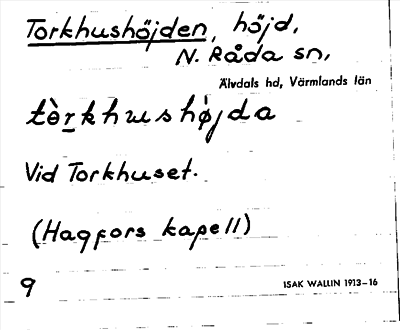 Torkhushöjden, höjd,
N. Råda sn,
Älvdals hd, Värmlands län
tèrkhushøjda
Vid Torkhuset.
(Hagfors kapell)
9
ISAK WALLIN 1913-16